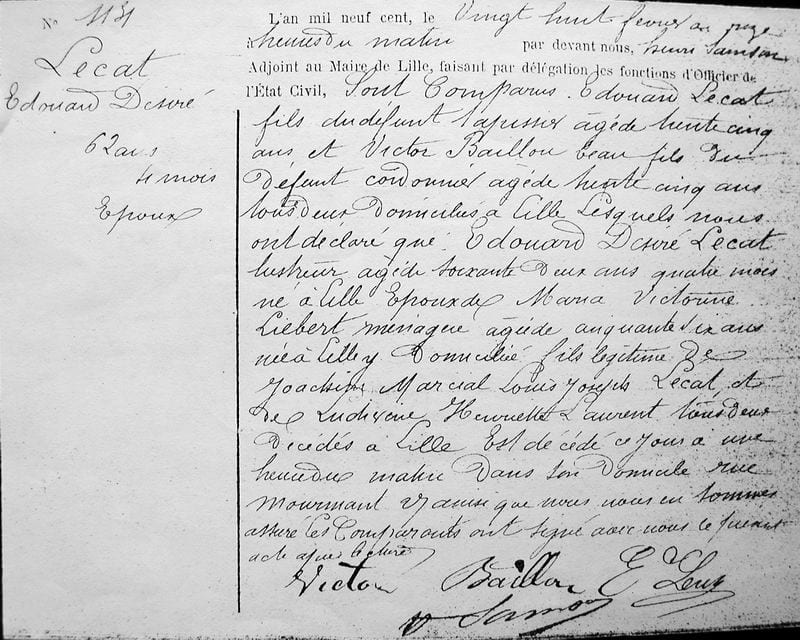 N° 1131
Lecat
Edouard Désiré
62 ans
4 mois
Epoux
L'an mil neuf cent, le Vingt huit février à
heures du matin par devant nous, henri Samson
Adjoint au Maire de Lille, faisant par délégation les fonctions d'Officier de
l'État Civil, Sont Comparus. Edouard Lecat
fils du défunt tapissier âgé de trente cinq
ans et Victor Baillou beau fils du
Défunt cordonnier âgé de trente cinq ans
tous deux Domiciliés à Lille Lesquels nous
ont déclaré que Edouard Désiré Lecat
lustreur âgé de soixante Deux ans quatre mois
né à Lille Epoux de Maria Victorine
Liébert ménagère âgée de cinquante six ans
née à Lille y Domiciliée fils légitime De
Joachim Marcial Louis Joseph Lecat et
De Henriette Laurent tous deux
Décédés à Lille Est décédé ce jour à une
heure du matin Dans son Domicile rue
Mourmant ainsi que nous nous en sommes
assuré Les Comparants ont signé avec nous le présent
acte après lecture
Victor Baillou E Lecat
Samson